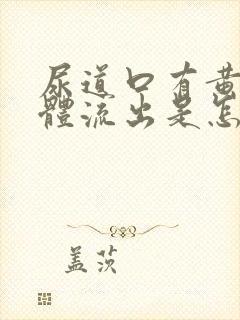 尿道口有黄
體流出是怎
盖茨